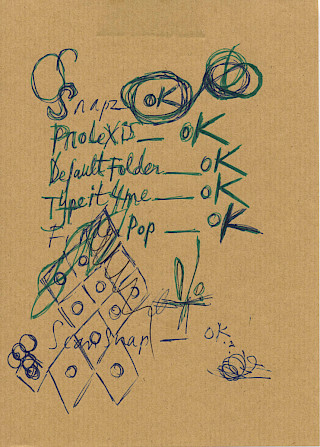 Snapz OK
ProLexis — OK
Default Folder — OK
Typeit4me — OK
Pop — OK
ScanSnap — OK.